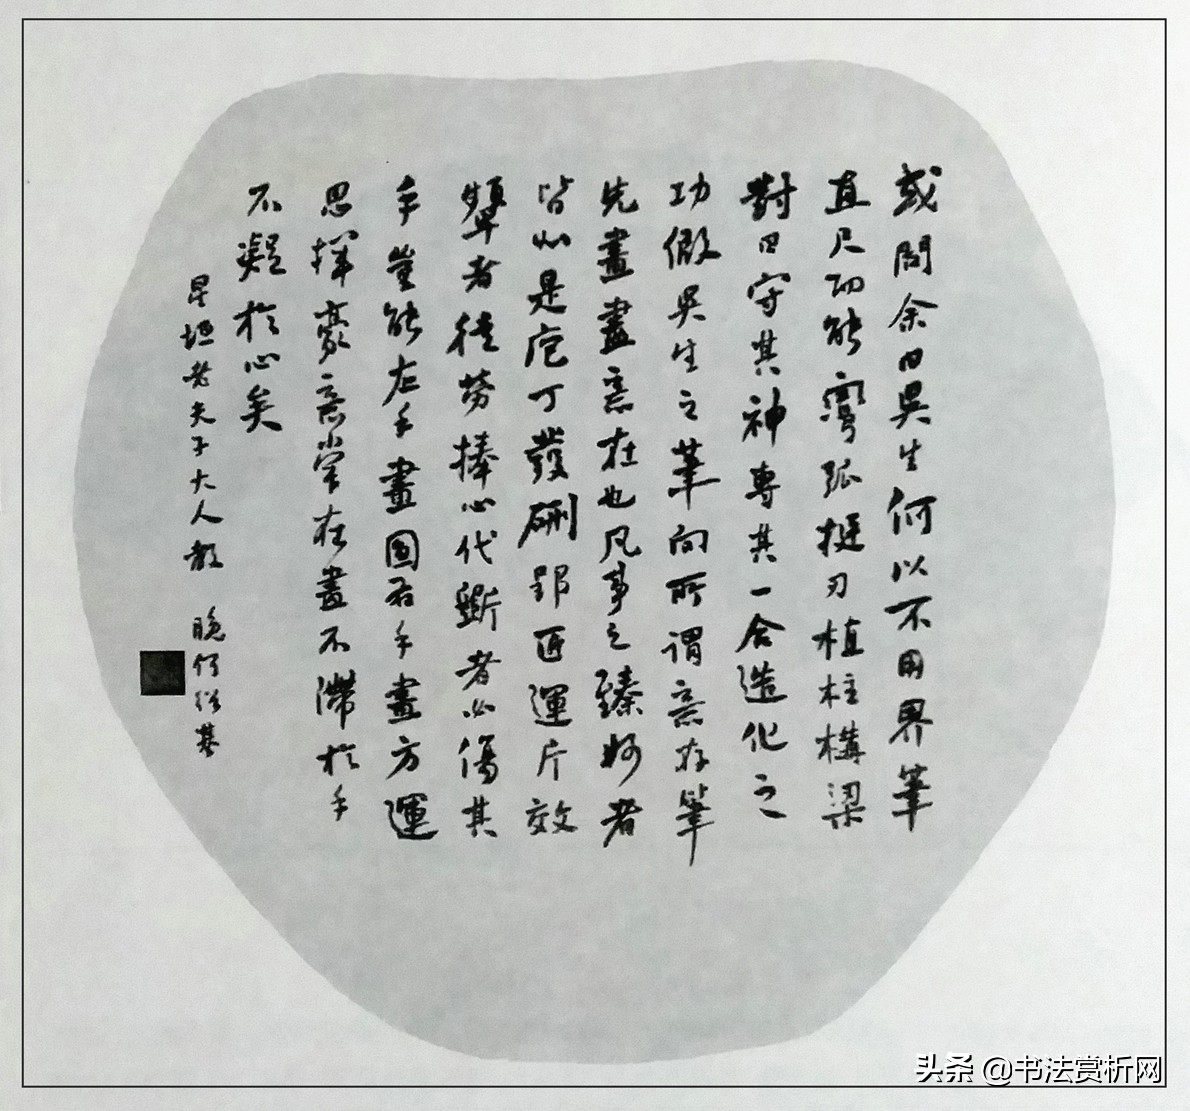 或問余曰吳生何以不用界筆
直尺而能彎弧挺刃植柱構梁
對曰守其神專其一合造化之
功假吳生之筆向所謂意存筆
先畫盡意在也凡事之臻妙者
皆如是庖丁發硎郢匠運斤效
顰者徒勞捧心代斲者必傷其
手豈能左手畫圓右手畫方運
思揮豪意常在畫不滯於手
不凝於心矣
星垣老夫子大人教 晚何紹基
头条 @书法赏析网